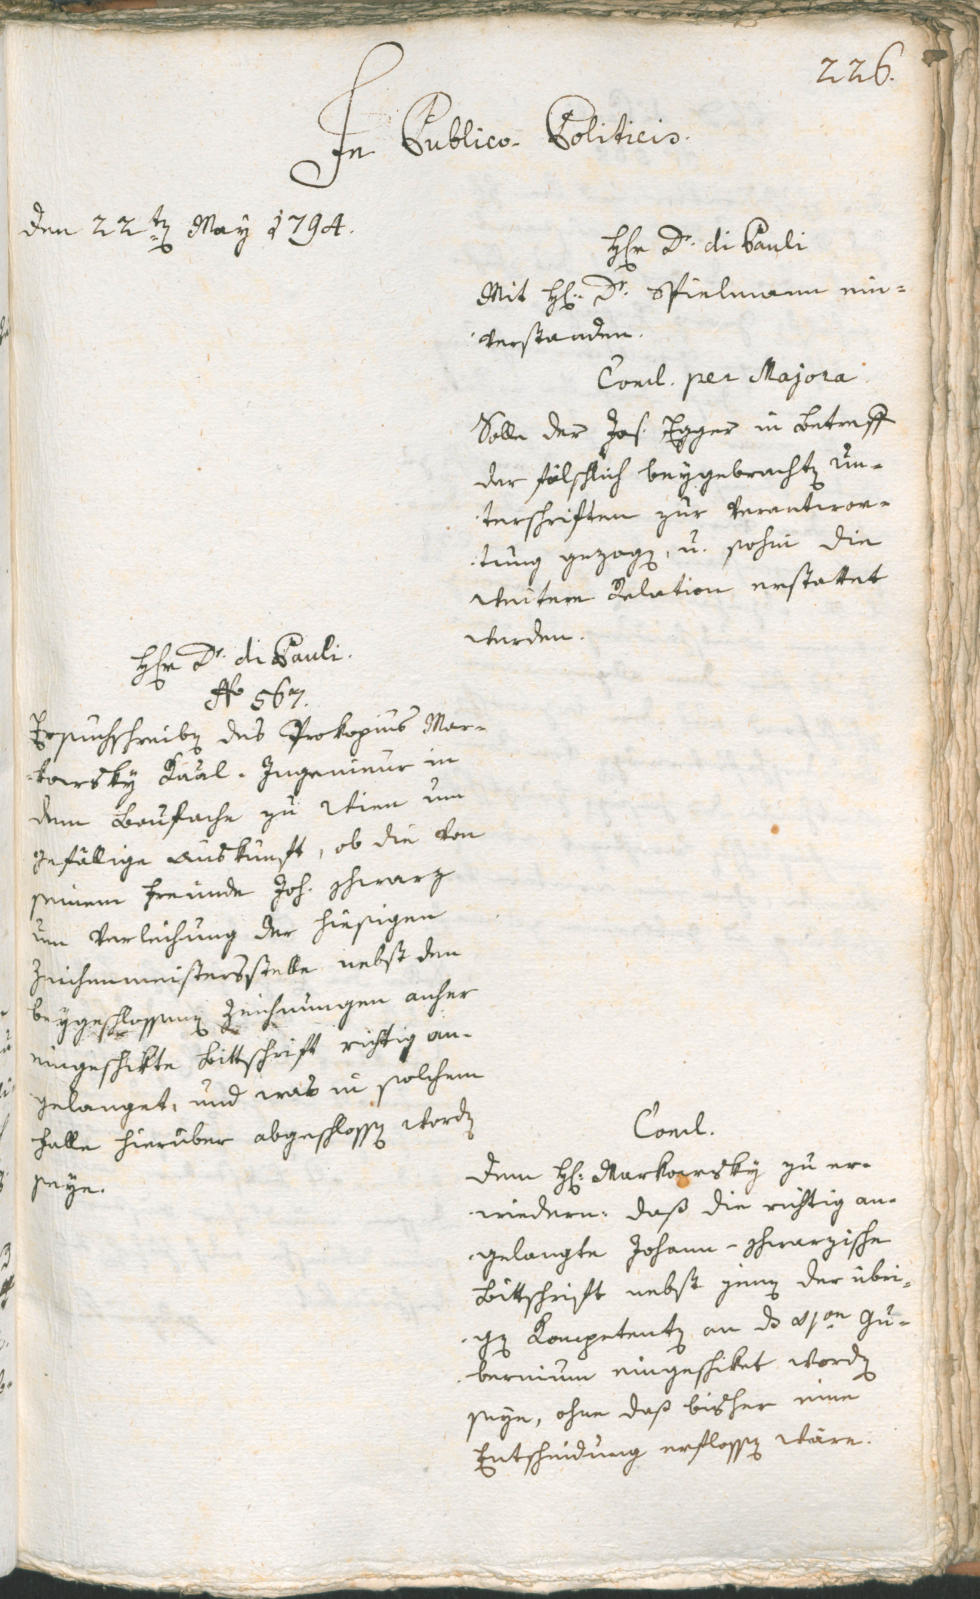 226.
In Publico-Politicis.
den 22ten May 1794.
Hr Dr. di Pauli
Mit H: Dr. Spielmann ein=
verstanden.
Concl. per Majora
Solle der Jos. Egger in Betreff
der fälschlich beygebrachten Un=
terschriften zur Verantwor=
tung gezogen, u. sohin die
weitere Relation erstattet
werden.
Hr Dr. di Pauli.
No 567.
Ersuchschreiben des Prokopius Mar=
kowsky Kaal-Ingenieur in
dem Baufache zu Wien um
gefällige Auskunft, ob die von
seinem Freunde Joh. Schwarz
um Verleihung der hiesigen
Zeichenmeistersstelle nebst den
beygeschlossenen Zeichnungen anher
eingeschikte Bittschrift richtig an=
gelanget, und was in solchem
Falle hierüber abgeschlossen worden
seye.
Concl.
Dem H: Markowsky zu er=
wiedern: daß die richtig an=
gelangte Johann-Schwarzische
Bittschrift nebst jenen der übri=
gen Kompetenten an das Gu=
bernium eingeschiket worden
seye, ohne daß bisher eine
Entscheidung erflossen wäre.